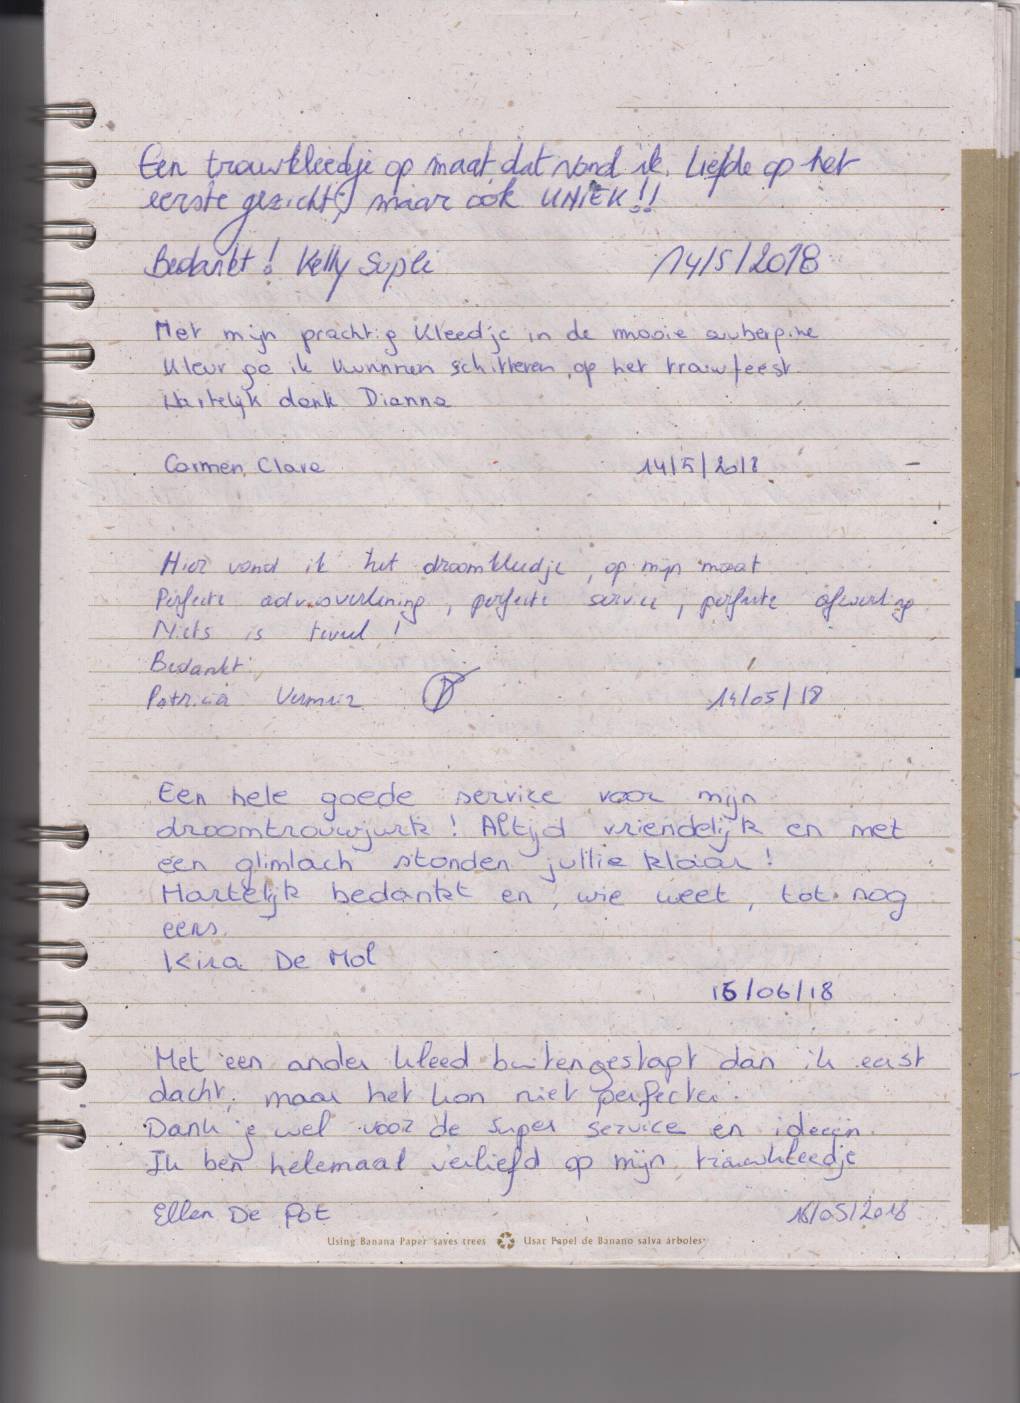 Een trouwkleedje op maat dat vond ik. Liefde op het
eerste gezicht, maar ook UNIEK!!
Bedankt! Kelly 14/5/2018
Met mijn prachtig kleedje in de mooie aubergine
kleur ga ik kunnen schitteren op het trouwfeest.
Hartelijk dank Dianna
Carmen Clave 14/5/2018
Hier vond ik het droomkleedje, op mijn maat
Perfecte adviesverlening, perfecte service, perfecte afwerking
Niets is teveel!
Bedankt
Patricia 14/05/18
Een hele goede service voor mijn
droomtrouwjurk! Altijd vriendelijk en met
een glimlach stonden jullie klaar!
Hartelijk bedankt en, wie weet, tot nog
eens.
Kira De Mol
15/06/18
Met een ander kleed buitengestapt dan ik eerst
dacht, maar het kon niet perfecter.
Dank je wel voor de super service en ideeën.
Ik ben helemaal verliefd op mijn trouwkleedje
Ellen De Pot 16/05/2018
Using Banana Paper saves trees Usar Papel de Banano salva árboles